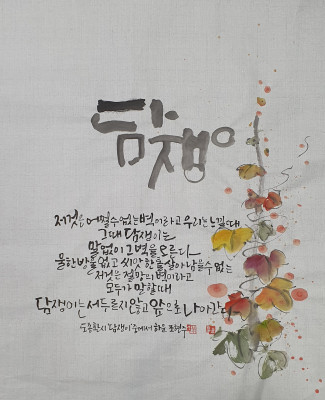 담쟁이
저것은 어쩔 수 없는 벽이라고 우리는 느낄 때
그때 담쟁이는
말없이 그 벽을 오른다
물 한방울 없고 씨앗 한톨 살아남을 수 없는
저것은 절망의 벽이라고
모두가 말할 때
담쟁이는 서두르지 않고 앞으로 나아간다
도종환 시 '담쟁이' 중에서 하요 조현수